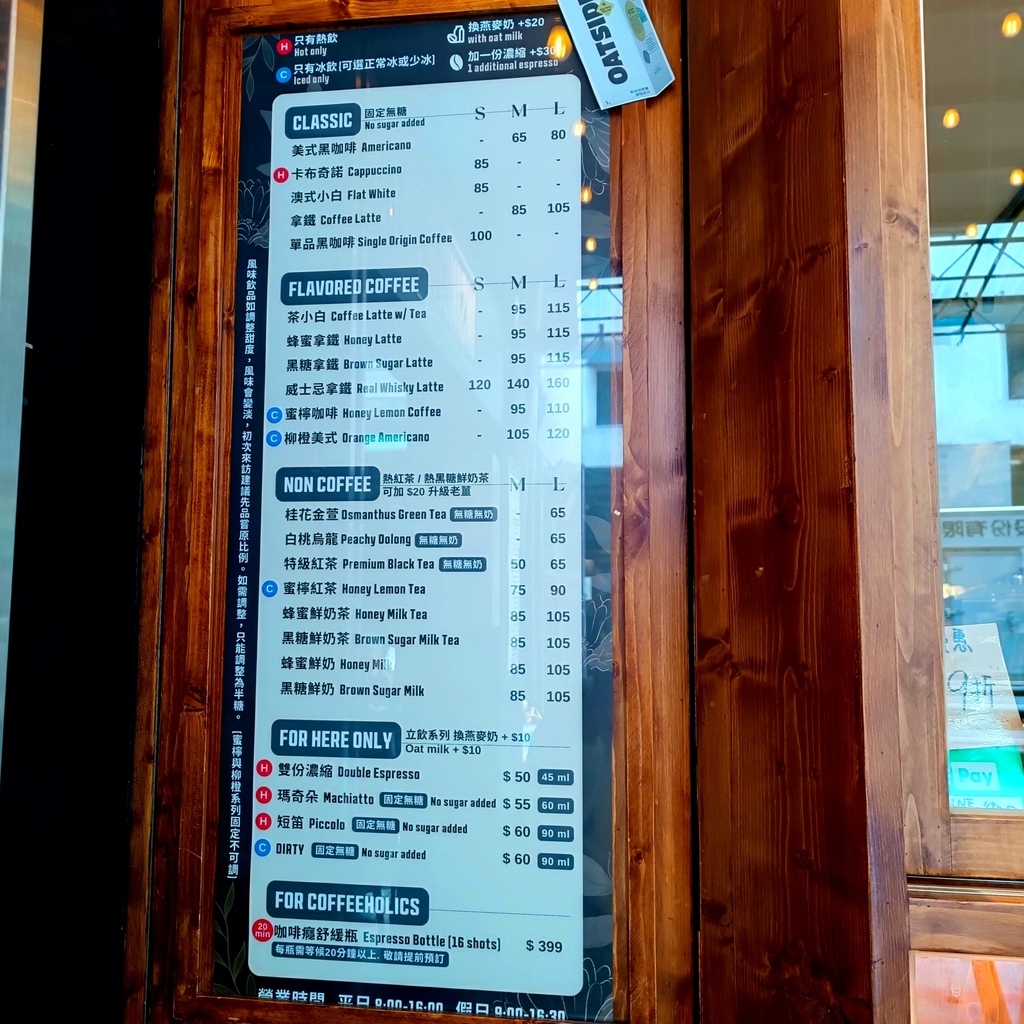 H 只有熱飲
Hot only
C 只有冰飲[可選正常冰或少冰]
Iced only
換燕麥奶 +$20
with oat milk
加一份濃縮 +$30
1 additional espresso
OATSIDE
CLASSIC 固定無糖 S M L
No sugar added
美式黑咖啡 Americano - 65 80
H 卡布奇諾 Cappuccino 85 - -
澳式小白 Flat White 85 - -
拿鐵 Coffee Latte - 85 105
單品黑咖啡 Single Origin Coffee 100 - -
FLAVORED COFFEE S M L
茶小白 Coffee Latte w/ Tea - 95 115
蜂蜜拿鐵 Honey Latte - 95 115
黑糖拿鐵 Brown Sugar Latte - 95 115
威士忌拿鐵 Real Whisky Latte 120 140 160
C 蜜檸咖啡 Honey Lemon Coffee - 95 110
C 柳橙美式 Orange Americano - 105 120
NON COFFEE 熱紅茶 / 熱黑糖鮮奶茶 M L
可加 $20 升級老薑
桂花金萱 Osmanthus Green Tea 無糖無奶 - 65
白桃烏龍 Peachy Oolong 無糖無奶 - 65
特級紅茶 Premium Black Tea 無糖無奶 50 65
C 蜜檸紅茶 Honey Lemon Tea 75 90
蜂蜜鮮奶茶 Honey Milk Tea 85 105
黑糖鮮奶茶 Brown Sugar Milk Tea 85 105
蜂蜜鮮奶 Honey Milk 85 105
黑糖鮮奶 Brown Sugar Milk 85 105
FOR HERE ONLY 立飲系列 換燕麥奶 + $10
Oat milk + $10
H 雙份濃縮 Double Espresso $ 50 45 ml
H 瑪奇朵 Machiatto 固定無糖 No sugar added $ 55 60 ml
H 短笛 Piccolo 固定無糖 No sugar added $ 60 90 ml
C DIRTY 固定無糖 No sugar added $ 60 90 ml
FOR COFFEEHOLICS
20 min 咖啡癮舒緩瓶 Espresso Bottle [16 shots] $ 399
每瓶需等候20分鐘以上. 敬請提前預訂
營業時間 平日 8:00-16:00 假日 8:00-16:30
風味飲品如調整甜度，風味會變淡，初次來訪建議先品嘗原比例。如需調整，只能調整為半糖。[蜜檸與柳橙系列固定不可調]
份有限
9折
Pay